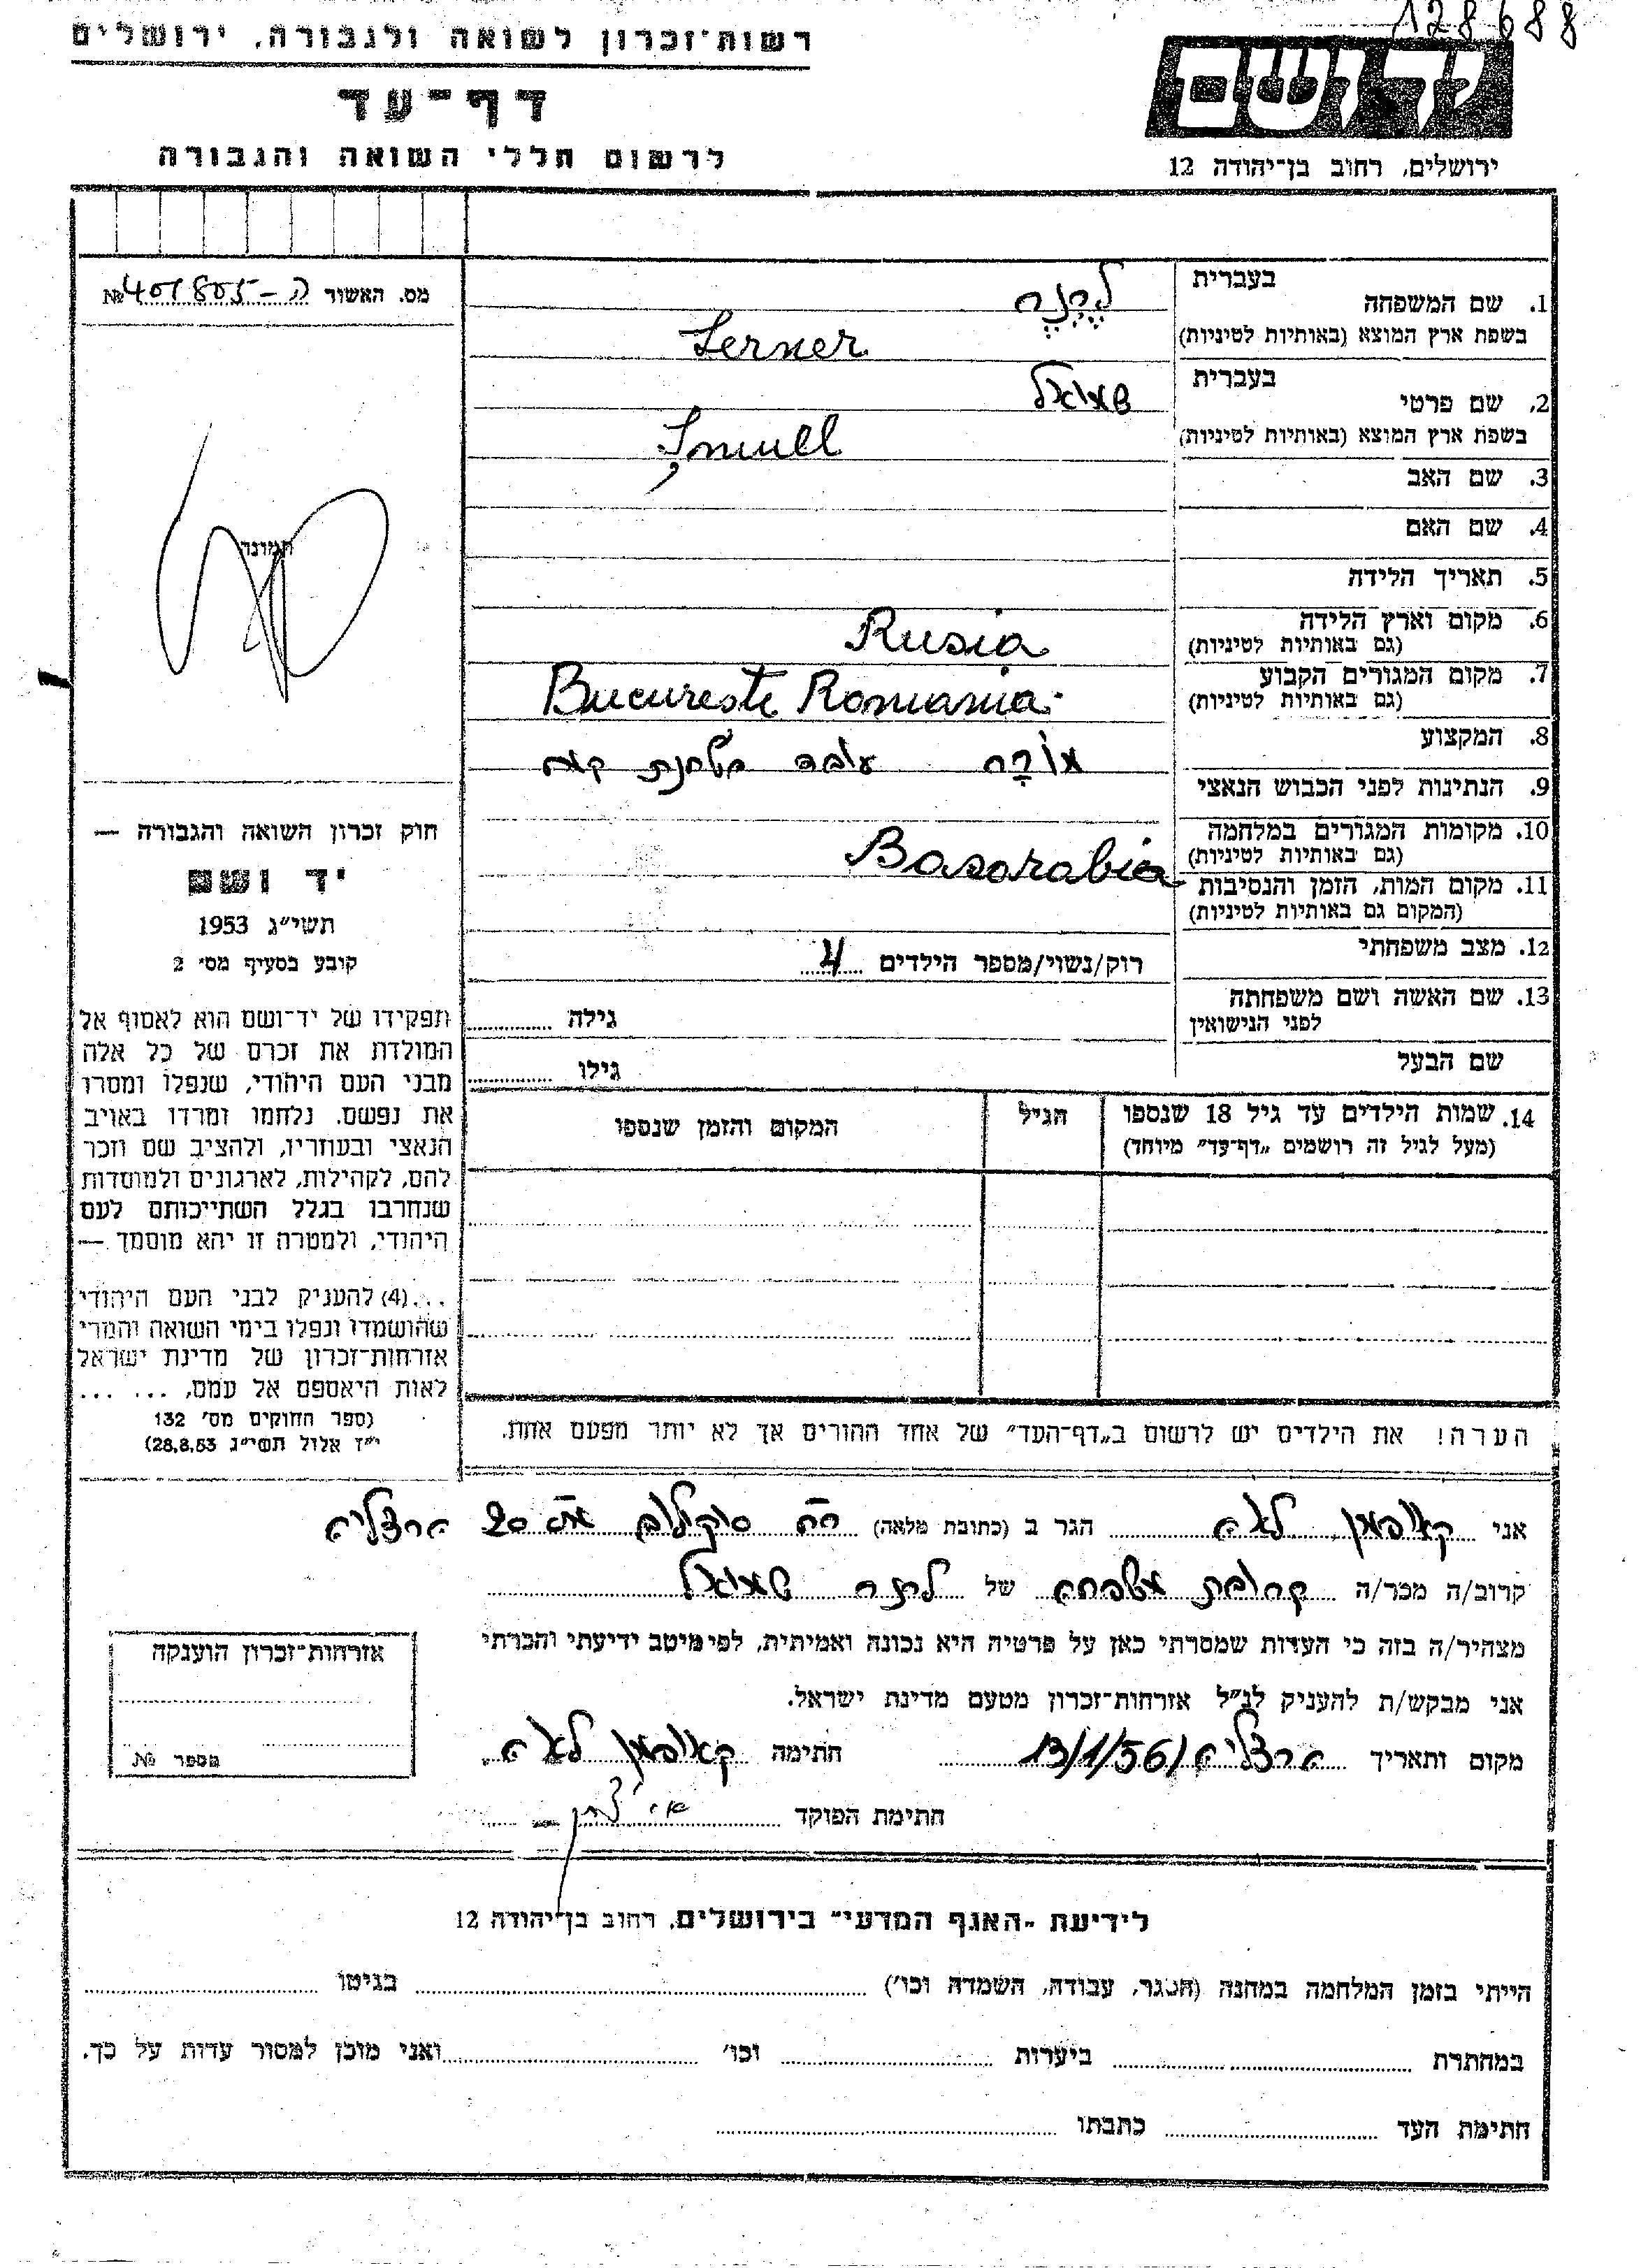 128688
רשות־זכרון לשואה ולגבורה, ירושלים
דף־עד
לרשום חללי השואה והגבורה
יד ושם
ירושלים, רחוב בן־יהודה 12
מס. האשור ה-401805 №
תמונה
חוק זכרון השואה והגבורה —
יד ושם
תשי״ג 1953
קובע בסעיף מס׳ 2
תפקידו של יד־ושם הוא לאסוף אל
המולדת את זכרם של כל אלה
מבני העם היהודי, שנפלו ומסרו
את נפשם. נלחמו ומרדו באויב
הנאצי ובעוזריו, ולהציב שם וזכר
להם, לקהילות, לארגונים ולמוסדות
שנחרבו בגלל השתייכותם לעם
היהודי, ולמטרה זו יהא מוסמך —
...(4) להעניק לבני העם היהודי
שהושמדו ונפלו בימי השואה והמרי
אזרחות־זכרון של מדינת ישראל
לאות היאספם אל עמם, ... ...
(ספר החוקים מס׳ 132
י״ז אלול תשי״ג 28.8.53)
בעברית
1. שם המשפחה לרנר
בשפת ארץ המוצא (באותיות לטיניות) Lerner
בעברית
2. שם פרטי שמואל
בשפת ארץ המוצא (באותיות לטיניות) Șmuel
3. שם האב
4. שם האם
5. תאריך הלידה
6. מקום וארץ הלידה Rusia
(גם באותיות לטיניות)
7. מקום המגורים הקבוע Bucureste Romania
(גם באותיות לטיניות)
8. המקצוע עובד בטחנת קמח
9. הנתינות לפני הכבוש הנאצי
10. מקומות המגורים במלחמה Basarabia
(גם באותיות לטיניות)
11. מקום המות, הזמן והנסיבות
(המקום גם באותיות לטיניות)
12. מצב משפחתי רוק/נשוי/מספר הילדים 4
13. שם האשה ושם משפחתה גילה
לפני הנישואין
שם הבעל גילו
14. שמות הילדים עד גיל 18 שנספו הגיל המקום והזמן שנספו
(מעל לגיל זה רושמים „דף־עד״ מיוחד)
הערה! את הילדים יש לרשום ב„דף־העד״ של אחד ההורים אך לא יותר מפעם אחת.
אני קאופמן לאה הגר ב (כתובת מלאה) רח סוקולוב מס 20 הרצליה
קרוב/ה מכר/ה קרובת משפחה של לרנר שמואל
מצהיר/ה בזה כי העדות שמסרתי כאן על פרטיה היא נכונה ואמיתית, לפי מיטב ידיעתי והכרתי
אני מבקש/ת להעניק לנ״ל אזרחות־זכרון מטעם מדינת ישראל.
מקום ותאריך הרצליה 13/1/56 חתימה קאופמן לאה
חתימת הפוקד
אזרחות־זכרון הוענקה
מספר №
לידיעת „האגף המדעי״ בירושלים, רחוב בן־יהודה 12
הייתי בזמן המלחמה במחנה (הסגר, עבודה, השמדה וכו׳) בגיטו
במחתרת ביערות וכו׳ ואני מוכן למסור עדות על כך.
חתימת העד כתבתו